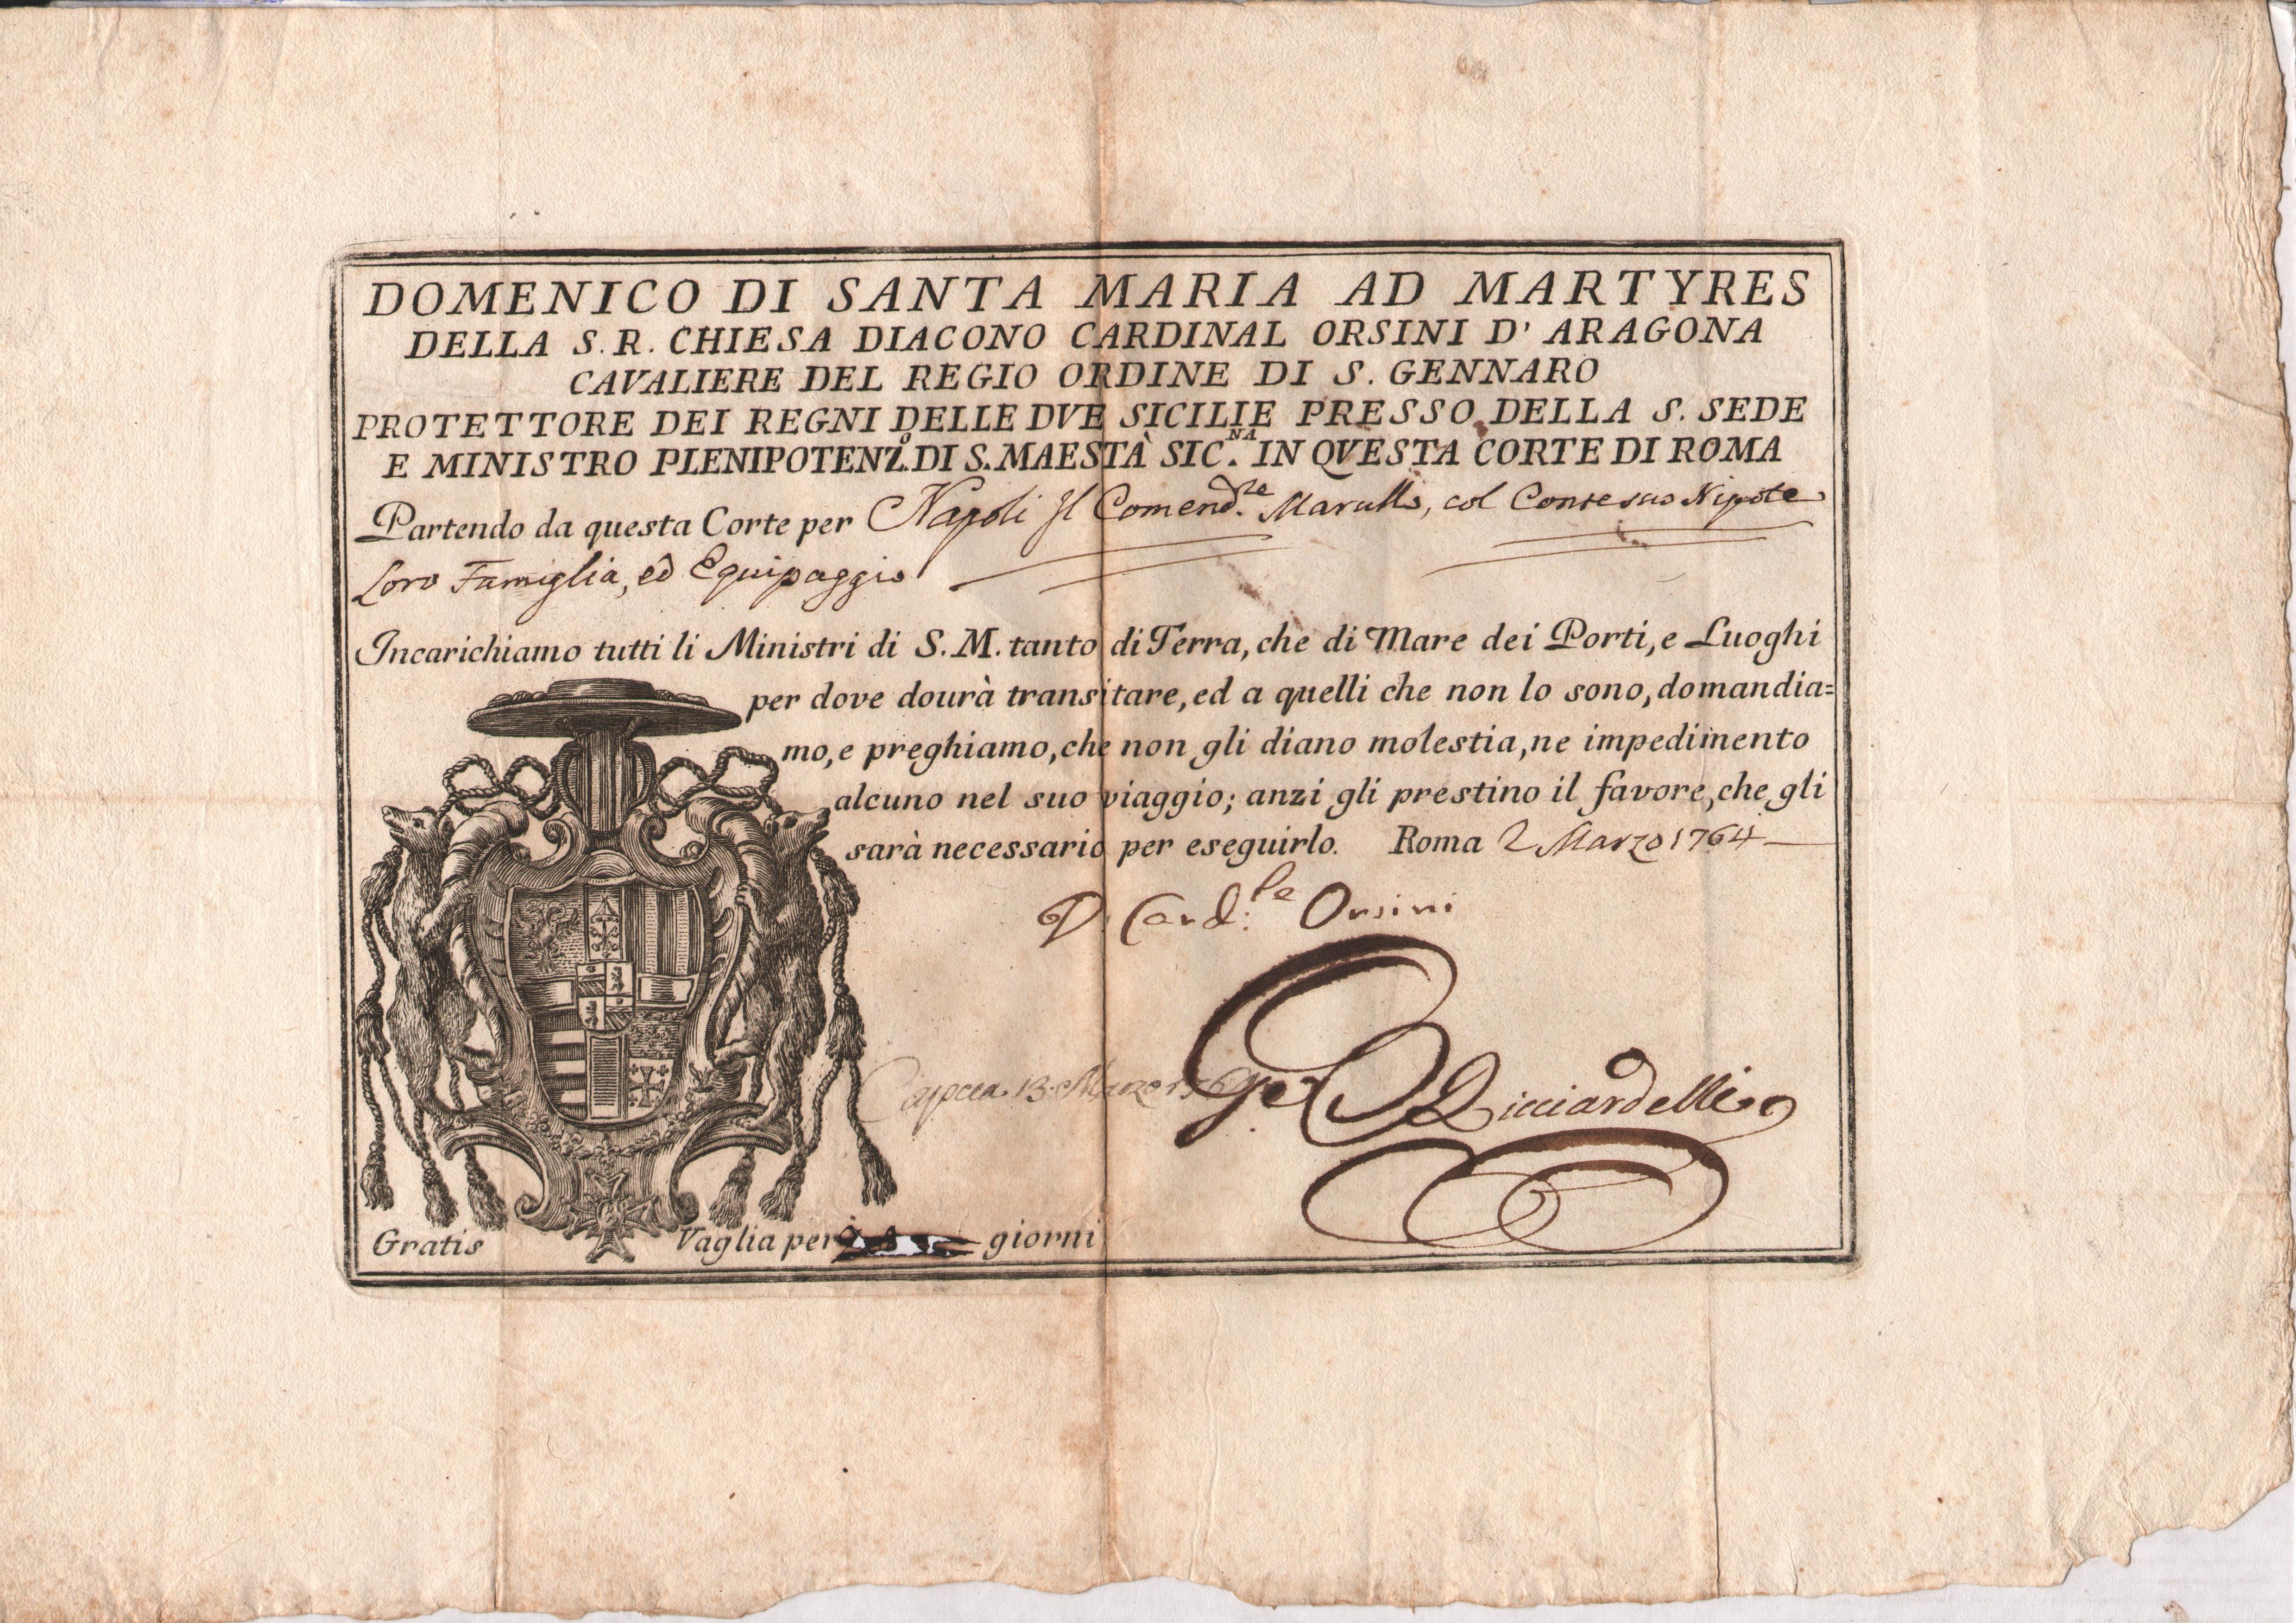 DOMENICO DI SANTA MARIA AD MARTYRES
DELLA S. R. CHIESA DIACONO CARDINAL ORSINI D' ARAGONA
CAVALIERE DEL REGIO ORDINE DI S. GENNARO
PROTETTORE DEI REGNI DELLE DVE SICILIE PRESSO DELLA S. SEDE
E MINISTRO PLENIPOTENZ.º DI S. MAESTÀ SIC.NA IN QVESTA CORTE DI ROMA
Partendo da questa Corte per Napoli Il Comend.re Marulli, col Conte suo Nipote
Loro Famiglia, ed Equipaggio
Incarichiamo tutti li Ministri di S. M. tanto di Terra, che di Mare dei Porti, e Luoghi
per dove dourà transitare, ed a quelli che non lo sono, domandia=
mo, e preghiamo, che non gli diano molestia, ne impedimento
alcuno nel suo viaggio; anzi gli prestino il favore, che gli
sarà necessario per eseguirlo. Roma 2 Marzo 1764
D. Card.le Orsini
13 Marzo
Ricciardelli
Gratis Vaglia per giorni